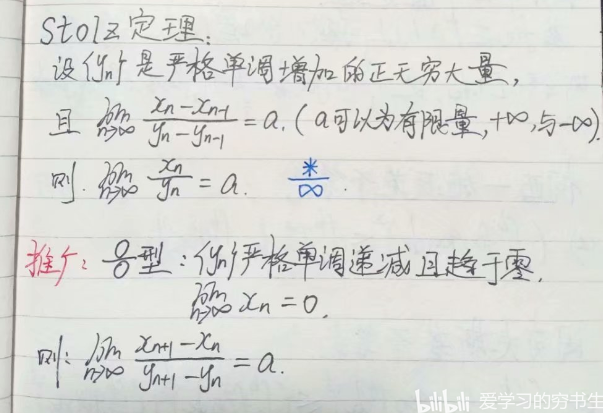 Stolz 定理:
设{yn}是严格单调增加的正无穷大量,
且 lim n→∞ (xn - xn-1)/(yn - yn-1) = a. (a可以为有限量, +∞, 与 -∞).
则. lim n→∞ xn/yn = a. */∞.
推广: 0/0型: {yn}严格单调递减且趋于零.
lim n→∞ xn = 0.
则: lim n→∞ (xn+1 - xn)/(yn+1 - yn) = a.
bilibili 爱学习的穷书生